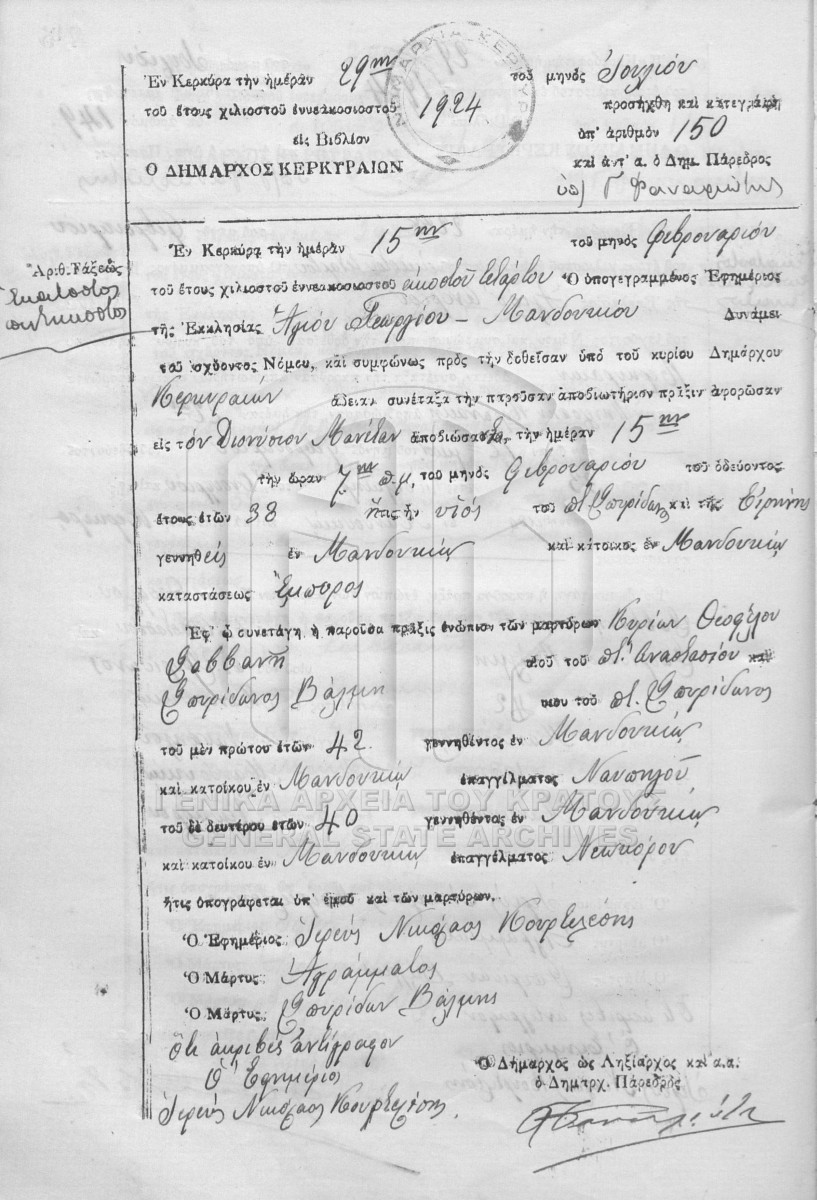 Ἐν Κερκύρᾳ τὴν ἡμέραν 29ην τοῦ μηνὸς Ἰουλίου
τοῦ ἔτους χιλιοστοῦ ἐννεακοσιοστοῦ 1924 προσήχθη καὶ κατεγράφη
εἰς Βιβλίον ὑπ' ἀριθμὸν 150
Ο ΔΗΜΑΡΧΟΣ ΚΕΡΚΥΡΑΙΩΝ καὶ ἀντ' α. ὁ Δημ. Πάρεδρος
ΔΗΜΑΡΧΙΑ ΚΕΡΚΥΡ
Ἐν Κερκύρᾳ τὴν ἡμέραν 15ην τοῦ μηνὸς Φεβρουαρίου
Ἀριθ. Τάξεως
Ἑκατοστὸς
πεντηκοστὸς
τοῦ ἔτους χιλιοστοῦ ἐννεακοσιοστοῦ εἰκοστοῦ τετάρτου Ὁ ὑπογεγραμμένος Ἐφημέριος
τῆς Ἐκκλησίας Ἁγίου Γεωργίου - Μανδουκίου Δυνάμει
τοῦ ἰσχύοντος Νόμου, καὶ συμφώνως πρὸς τὴν δοθεῖσαν ὑπὸ τοῦ κυρίου Δημάρχου
Κερκυραίων ἄδειαν συνέταξα τὴν παροῦσαν ἀποβιωτήριον πρᾶξιν ἀφορῶσαν
εἰς τὸν Διονύσιον ἀποβιώσαντα τὴν ἡμέραν 15ην
τὴν ὥραν 7ην π.μ. τοῦ μηνὸς Φεβρουαρίου τοῦ ὁδεύοντος
ἔτους ἐτῶν 38 ἥτις ἦν υἱὸς τοῦ ποτ. Σπυρίδωνος καὶ τῆς Εἰρήνης
γεννηθεὶς ἐν Μανδουκίῳ καὶ κάτοικος ἐν Μανδουκίῳ
καταστάσεως Ἔμπορος
Ἐφ' ᾧ συνετάγη ἡ παροῦσα πρᾶξις ἐνώπιον τῶν μαρτύρων Κυρίων Θεοφίλου
Σαββανῆ υἱοῦ τοῦ ποτ. Ἀναστασίου καὶ
Σπυρίδωνος Βάλμη υἱοῦ τοῦ ποτ. Σπυρίδωνος
τοῦ μὲν πρώτου ἐτῶν 42 γεννηθέντος ἐν Μανδουκίῳ
καὶ κατοίκου ἐν Μανδουκίῳ ἐπαγγέλματος Ναυπηγοῦ
ΓΕΝΙΚΑ ΑΡΧΕΙΑ ΤΟΥ ΚΡΑΤΟΥΣ
τοῦ δὲ δευτέρου ἐτῶν 40 γεννηθέντος ἐν Μανδουκίῳ
GENERAL STATE ARCHIVES
καὶ κατοίκου ἐν Μανδουκίῳ ἐπαγγέλματος Νεωκόρου
ἥτις ὑπογράφεται ὑπ' ἐμοῦ καὶ τῶν μαρτύρων.
Ὁ Ἐφημέριος Ἱερεὺς Νικόλαος Κουρτελέσης
Ὁ Μάρτυς Ἀγράμματος
Ὁ Μάρτυς Σπυρίδων Βάλμης
Ὅτι ἀκριβὲς ἀντίγραφον
Ὁ Ἐφημέριος
Ἱερεὺς Νικόλαος Κουρτελέσης
Ὁ Δήμαρχος ὡς Ληξίαρχος καὶ α.α.
ὁ Δημαρχ. Πάρεδρος